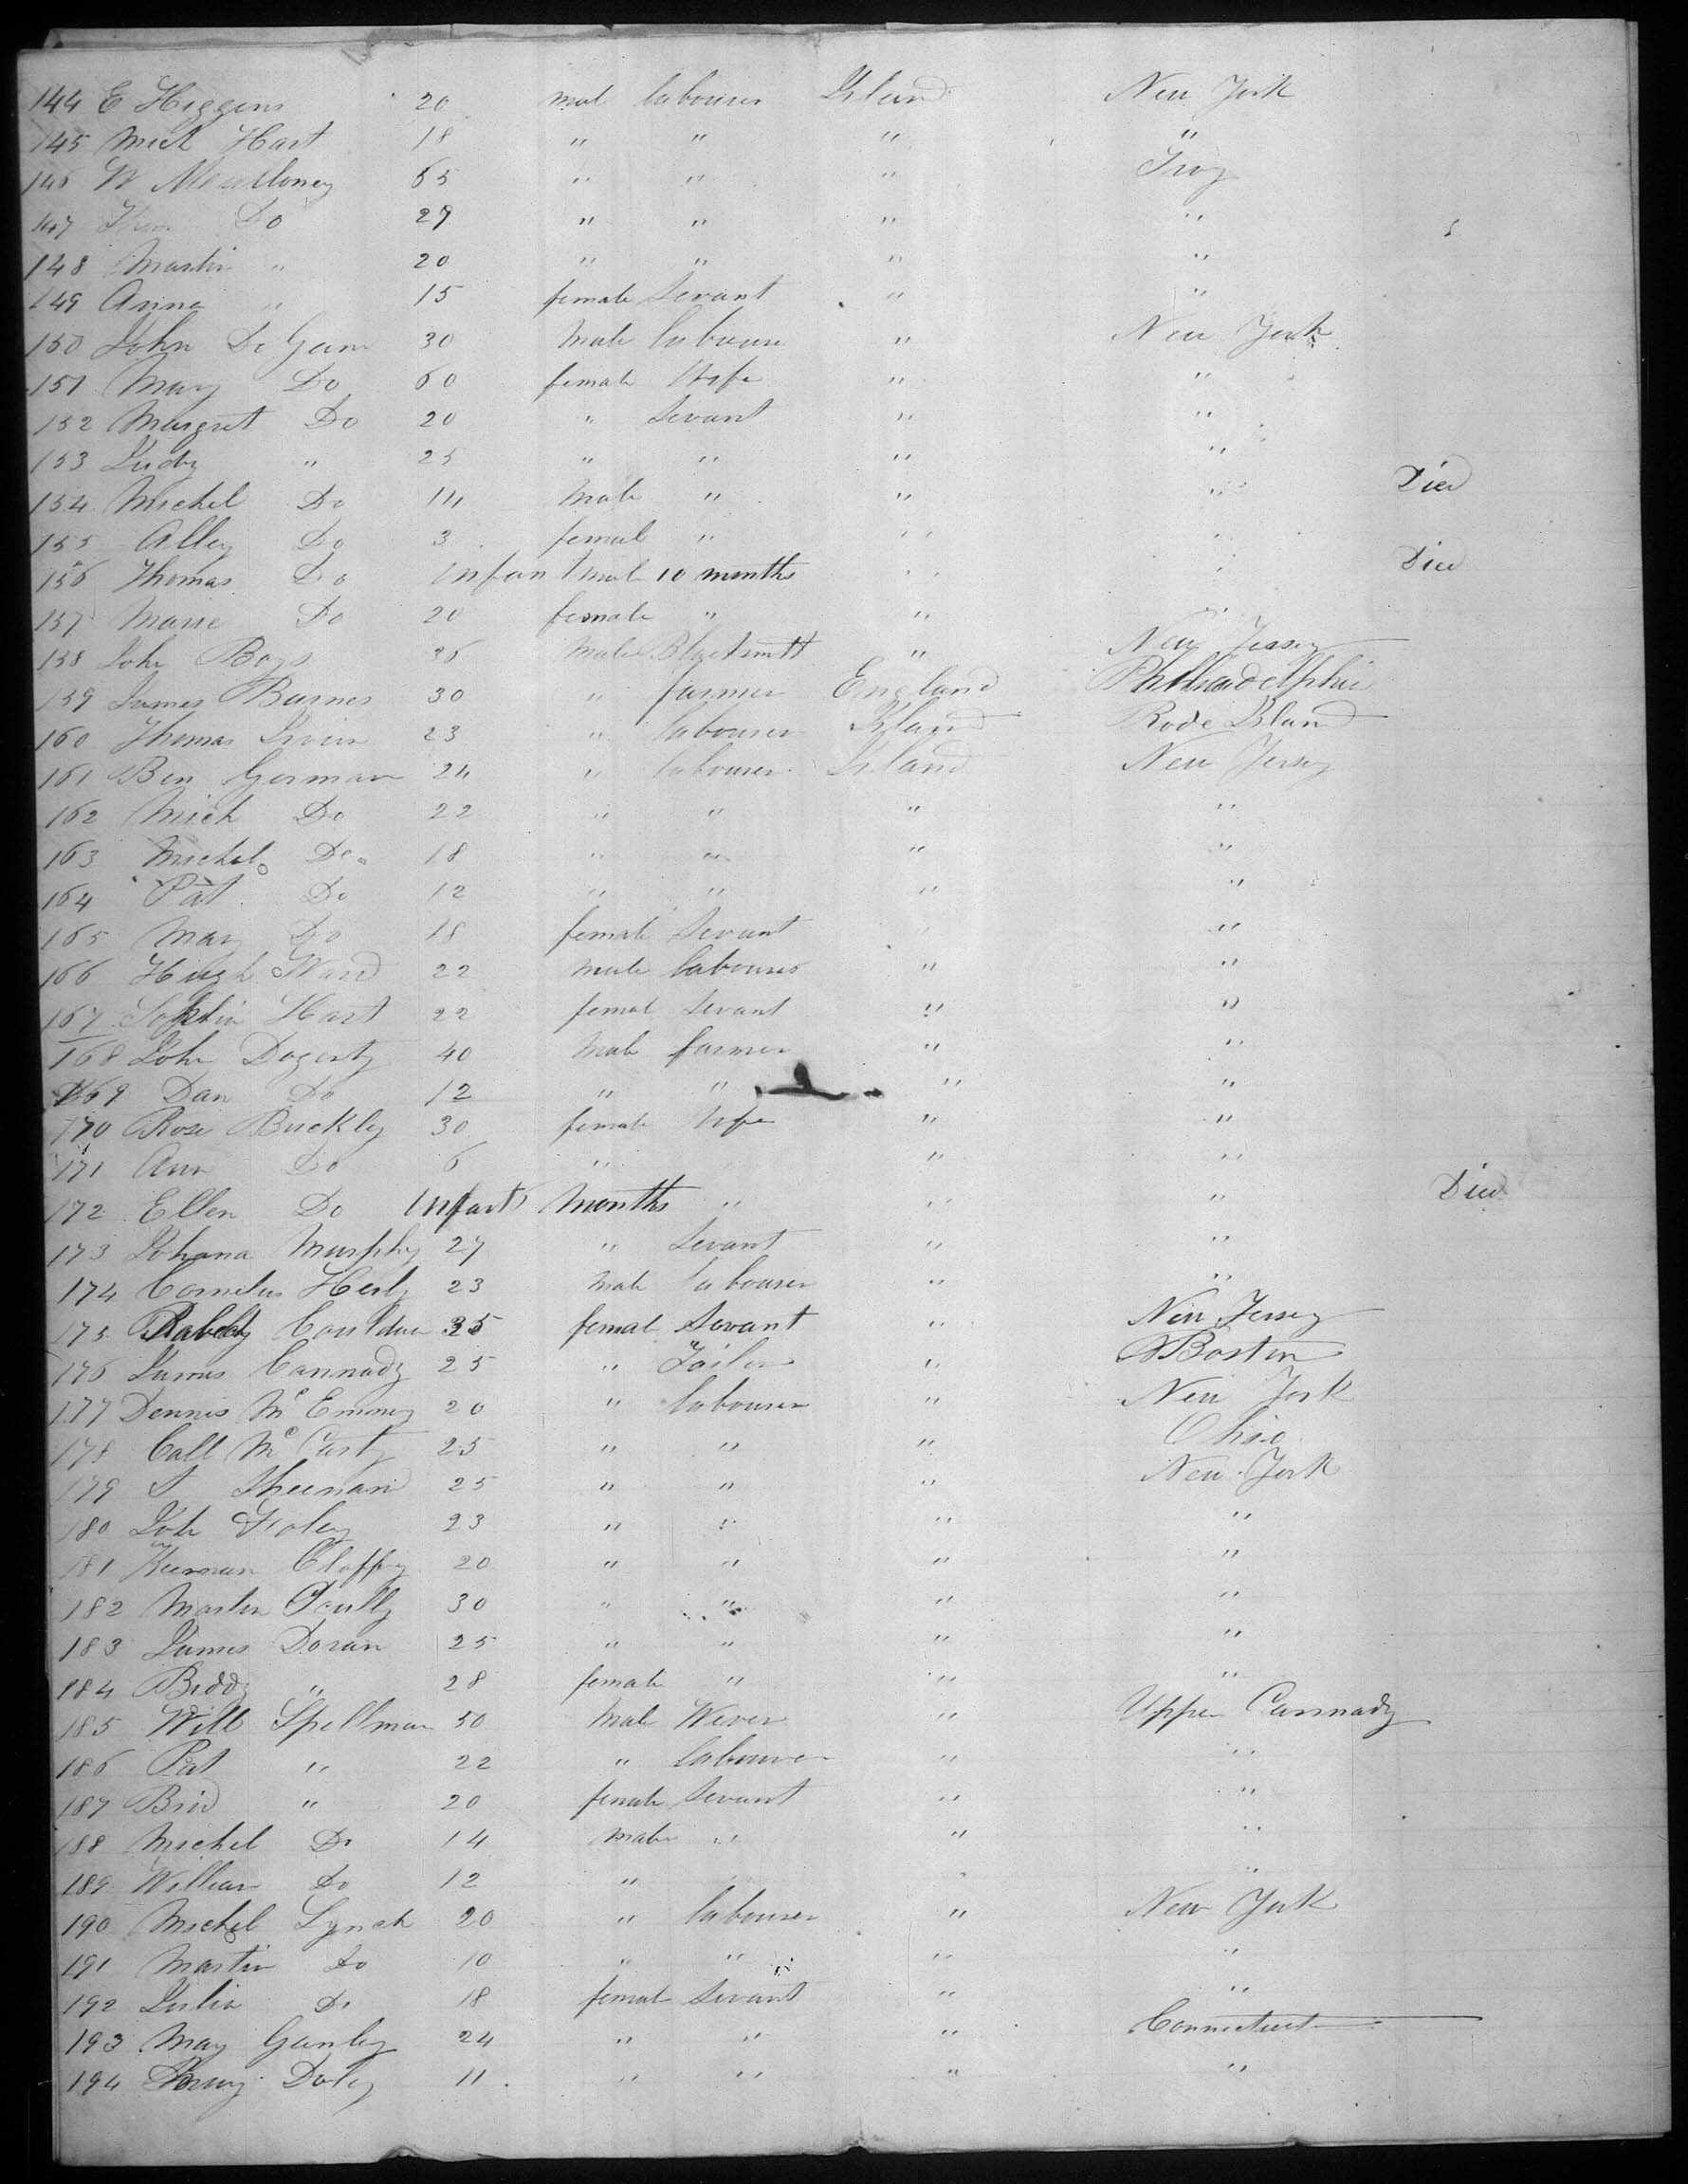 144 E Higgens 20 mal labourer Irland New York
145 Mick Hart 18 " " " "
146 W 65 " " " Troy
147 Do 27 " " " "
148 Martin " 20 " " " "
149 Anna " 15 female Servant " "
150 John 30 Male labourer " New York
151 Mary Do 60 female Wife " "
152 Margret Do 20 " Servant " "
153 Judy " 25 " " " "
154 Michel Do 14 Male " " " Died
155 Alley Do 3 femal " " "
156 Thomas Do Infant mal 10 months " " Died
157 Marie Do 20 female " " "
158 John 36 Male Blacksmitt " New Jersey
159 James Burnes 30 " farmer England Philiadelphia
160 Thomas 23 " labourer Irland Rode Island
161 Ben Gorman 24 " labourer Irland New Jersey
162 Mick Do 22 " " " "
163 Michel Do 18 " " " "
164 Pat Do 12 " " " "
165 Mary Do 18 female Servant " "
166 Hugh Ward 22 male labourer " "
167 Hart 22 femal Servant " "
168 John Dogerty 40 Male farmer " "
169 Dan Do 12 " " " "
170 Rose Buckley 30 female Wife " "
171 Ann Do 6 " " "
172 Ellen Do Infant months " " " Died
173 Johana Murphy 27 " Servant " "
174 Cornelus 23 Male labourer " "
175 35 femal Servant " New Jersey
176 James Cannady 25 " Tailor " Boston
177 Dennis 20 " labourer " New York
178 Call McCarty 25 " " " Ohio
179 25 " " " New York
180 Foley 23 " " " "
181 20 " " " "
182 Martin Scully 30 " " " "
183 James Doran 25 " " " "
184 Biddy " 28 female " " "
185 Will Spellman 50 Male Wever " Upper Cannady
186 Pat " 22 " labourer " "
187 Brid " 20 female Servant " "
188 Michel Do 14 Male " " "
189 William Do 12 " " "
190 Michel Lynch 20 " labourer " New York
191 Martin Do 10 " " " "
192 Julia Do 18 femal Servant " "
193 May Ganley 24 " " " Connecticut
194 11 " " " "